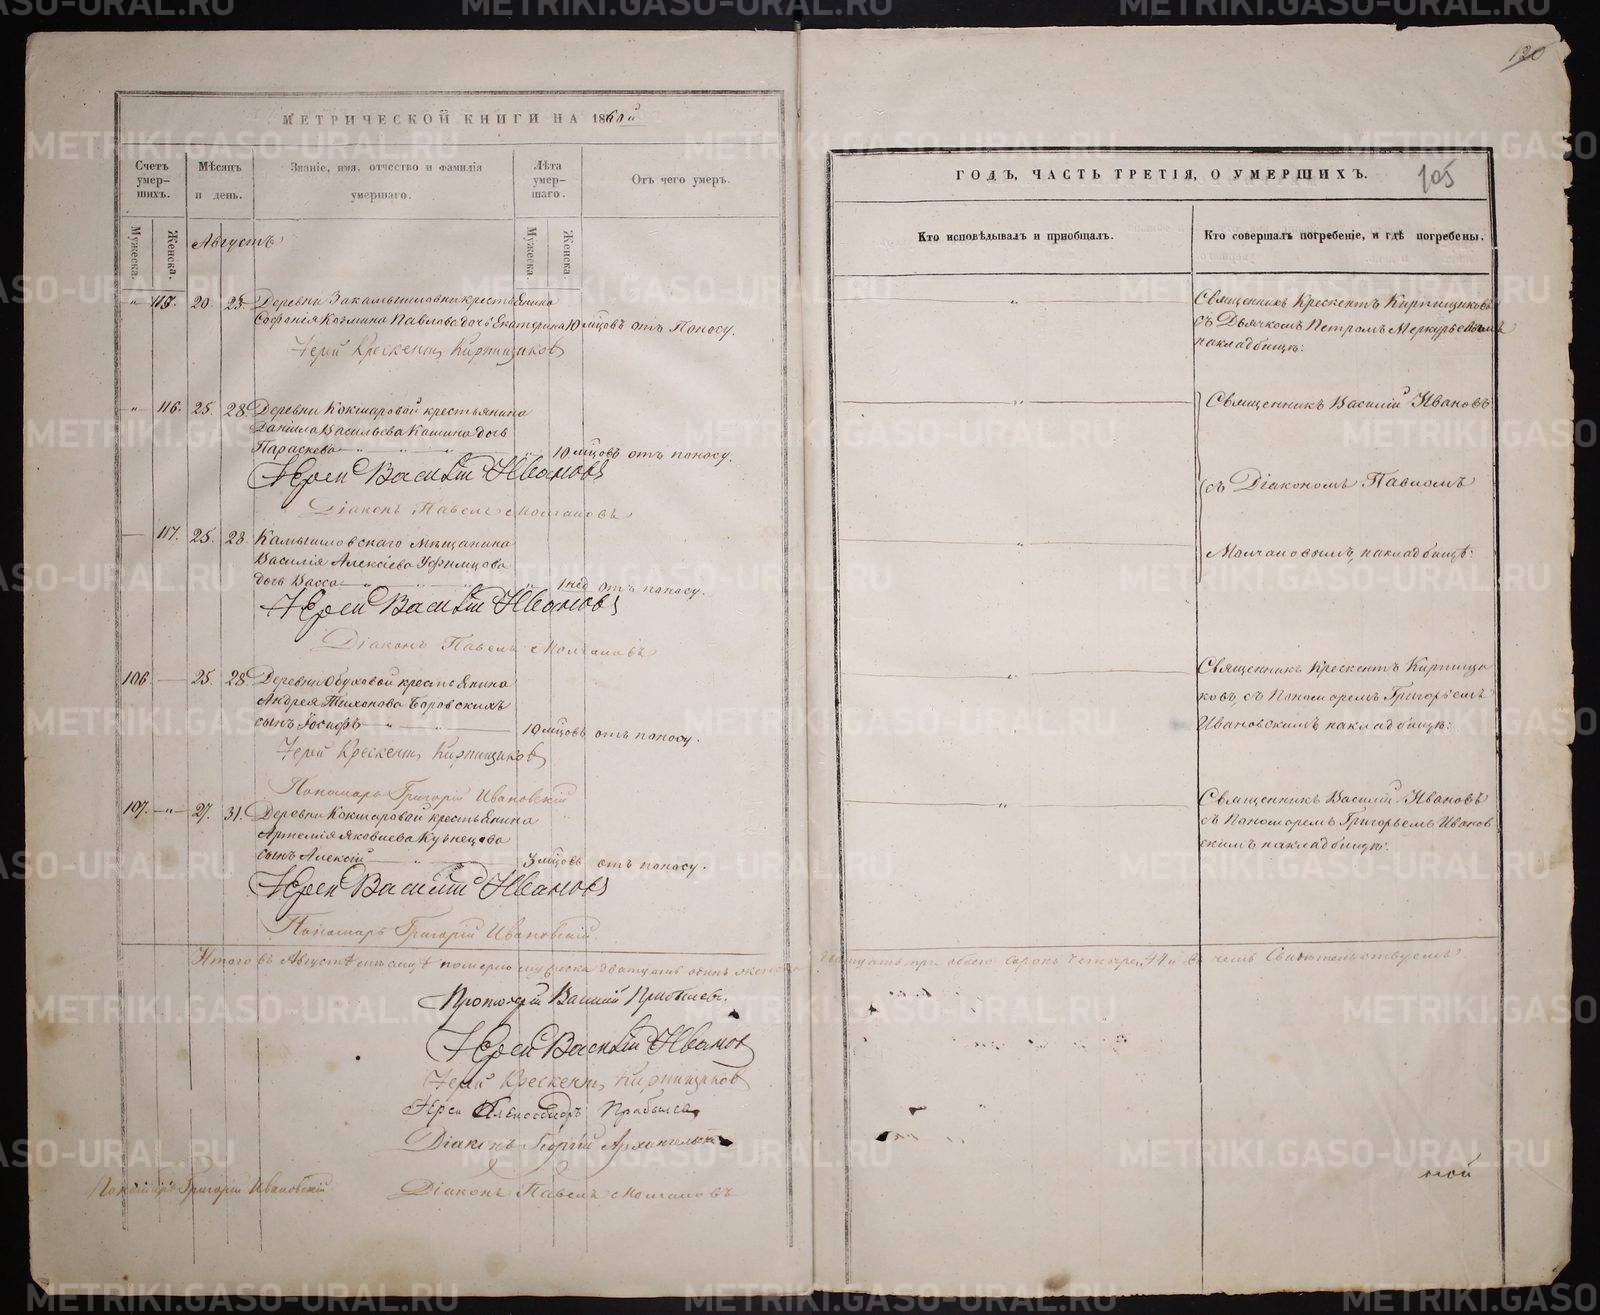 METRIKI.GASO-URAL.RU
120
МЕТРИЧЕСКОЙ КНИГИ НА 1860й
Счетъ умер-шихъ.
Мѣсяцъ и день.
Званіе, имя, отчество и фамилія умершаго.
Лѣта умер-шаго.
Отъ чего умеръ.
Мужеска.
Женска.
Мужеска.
Женска.
Августъ
" 115. 20 23. Деревни Закамышловки крестьянина
Софонія Козмина Павлова дочь Екатерина 10 мцовъ отъ Поносу.
Іерей Крескентъ Кирпищиковъ
" 116. 25. 28. Деревни Кокшаровой крестьянина
Даніила Васильева Кашина дочь
Параскева " " " " 10 мцовъ отъ поносу.
Іерей Василій Ивановъ
Діаконъ Павелъ Молчановъ
— 117. 25. 28. Камышловскаго мѣщанина
Василія Алексѣева Уфимцова
дочь Васса " " " " 1 нед отъ поносу.
Іерей Василій Ивановъ
Діаконъ Павелъ Молчановъ
106. — 25. 28. Деревни Обуховой крестьянина
Андрея Тихонова Боровскихъ
сынъ Іосифъ " " 10 мцовъ отъ поносу.
Іерей Крескентъ Кирпищиковъ
Пономарь Григорій Ивановскій
107. " 27. 31. Деревни Кокшаровой крестьянина
Артемія Яковлева Кузнецова
сынъ Алексій " 3 мцовъ отъ поносу.
Іерей Василій Ивановъ
Пономарь Григорій Ивановскій.
Итого въ Августѣ мѣсяцѣ померло мужеска дватцать одинъ женска
Протоіерей Василій Прибылевъ.
Іерей Василій Ивановъ
Іерей Крескентъ Кирпищиковъ
Іерей Александръ Прибылевъ
Діаконъ Георгій
Пономарь Григорій Ивановскій
Діаконъ Павелъ Молчановъ
ГОДЪ, ЧАСТЬ ТРЕТІЯ, О УМЕРШИХЪ. 105
Кто исповѣдывалъ и пріобщалъ.
Кто совершалъ погребеніе, и гдѣ погребены.
" Священникъ Крескентъ Кирпищиковъ
съ Дьячкомъ Петромъ Меркурьевымъ
на кладбищѣ:
" Священникъ Василій Ивановъ
съ Діакономъ Павломъ
" Молчановымъ, на кладбищѣ:
" Священникъ Крескентъ Кирпищи
ковъ, съ Пономаремъ Григорьемъ
Ивановскимъ на кладбищѣ:
" Священникъ Василій Ивановъ
съ Пономаремъ Григорьемъ Иванов
скимъ на кладбищѣ:
дватцать три обоего сорокъ четыре, 44, въ чемъ Свидетельствуемъ.
ной